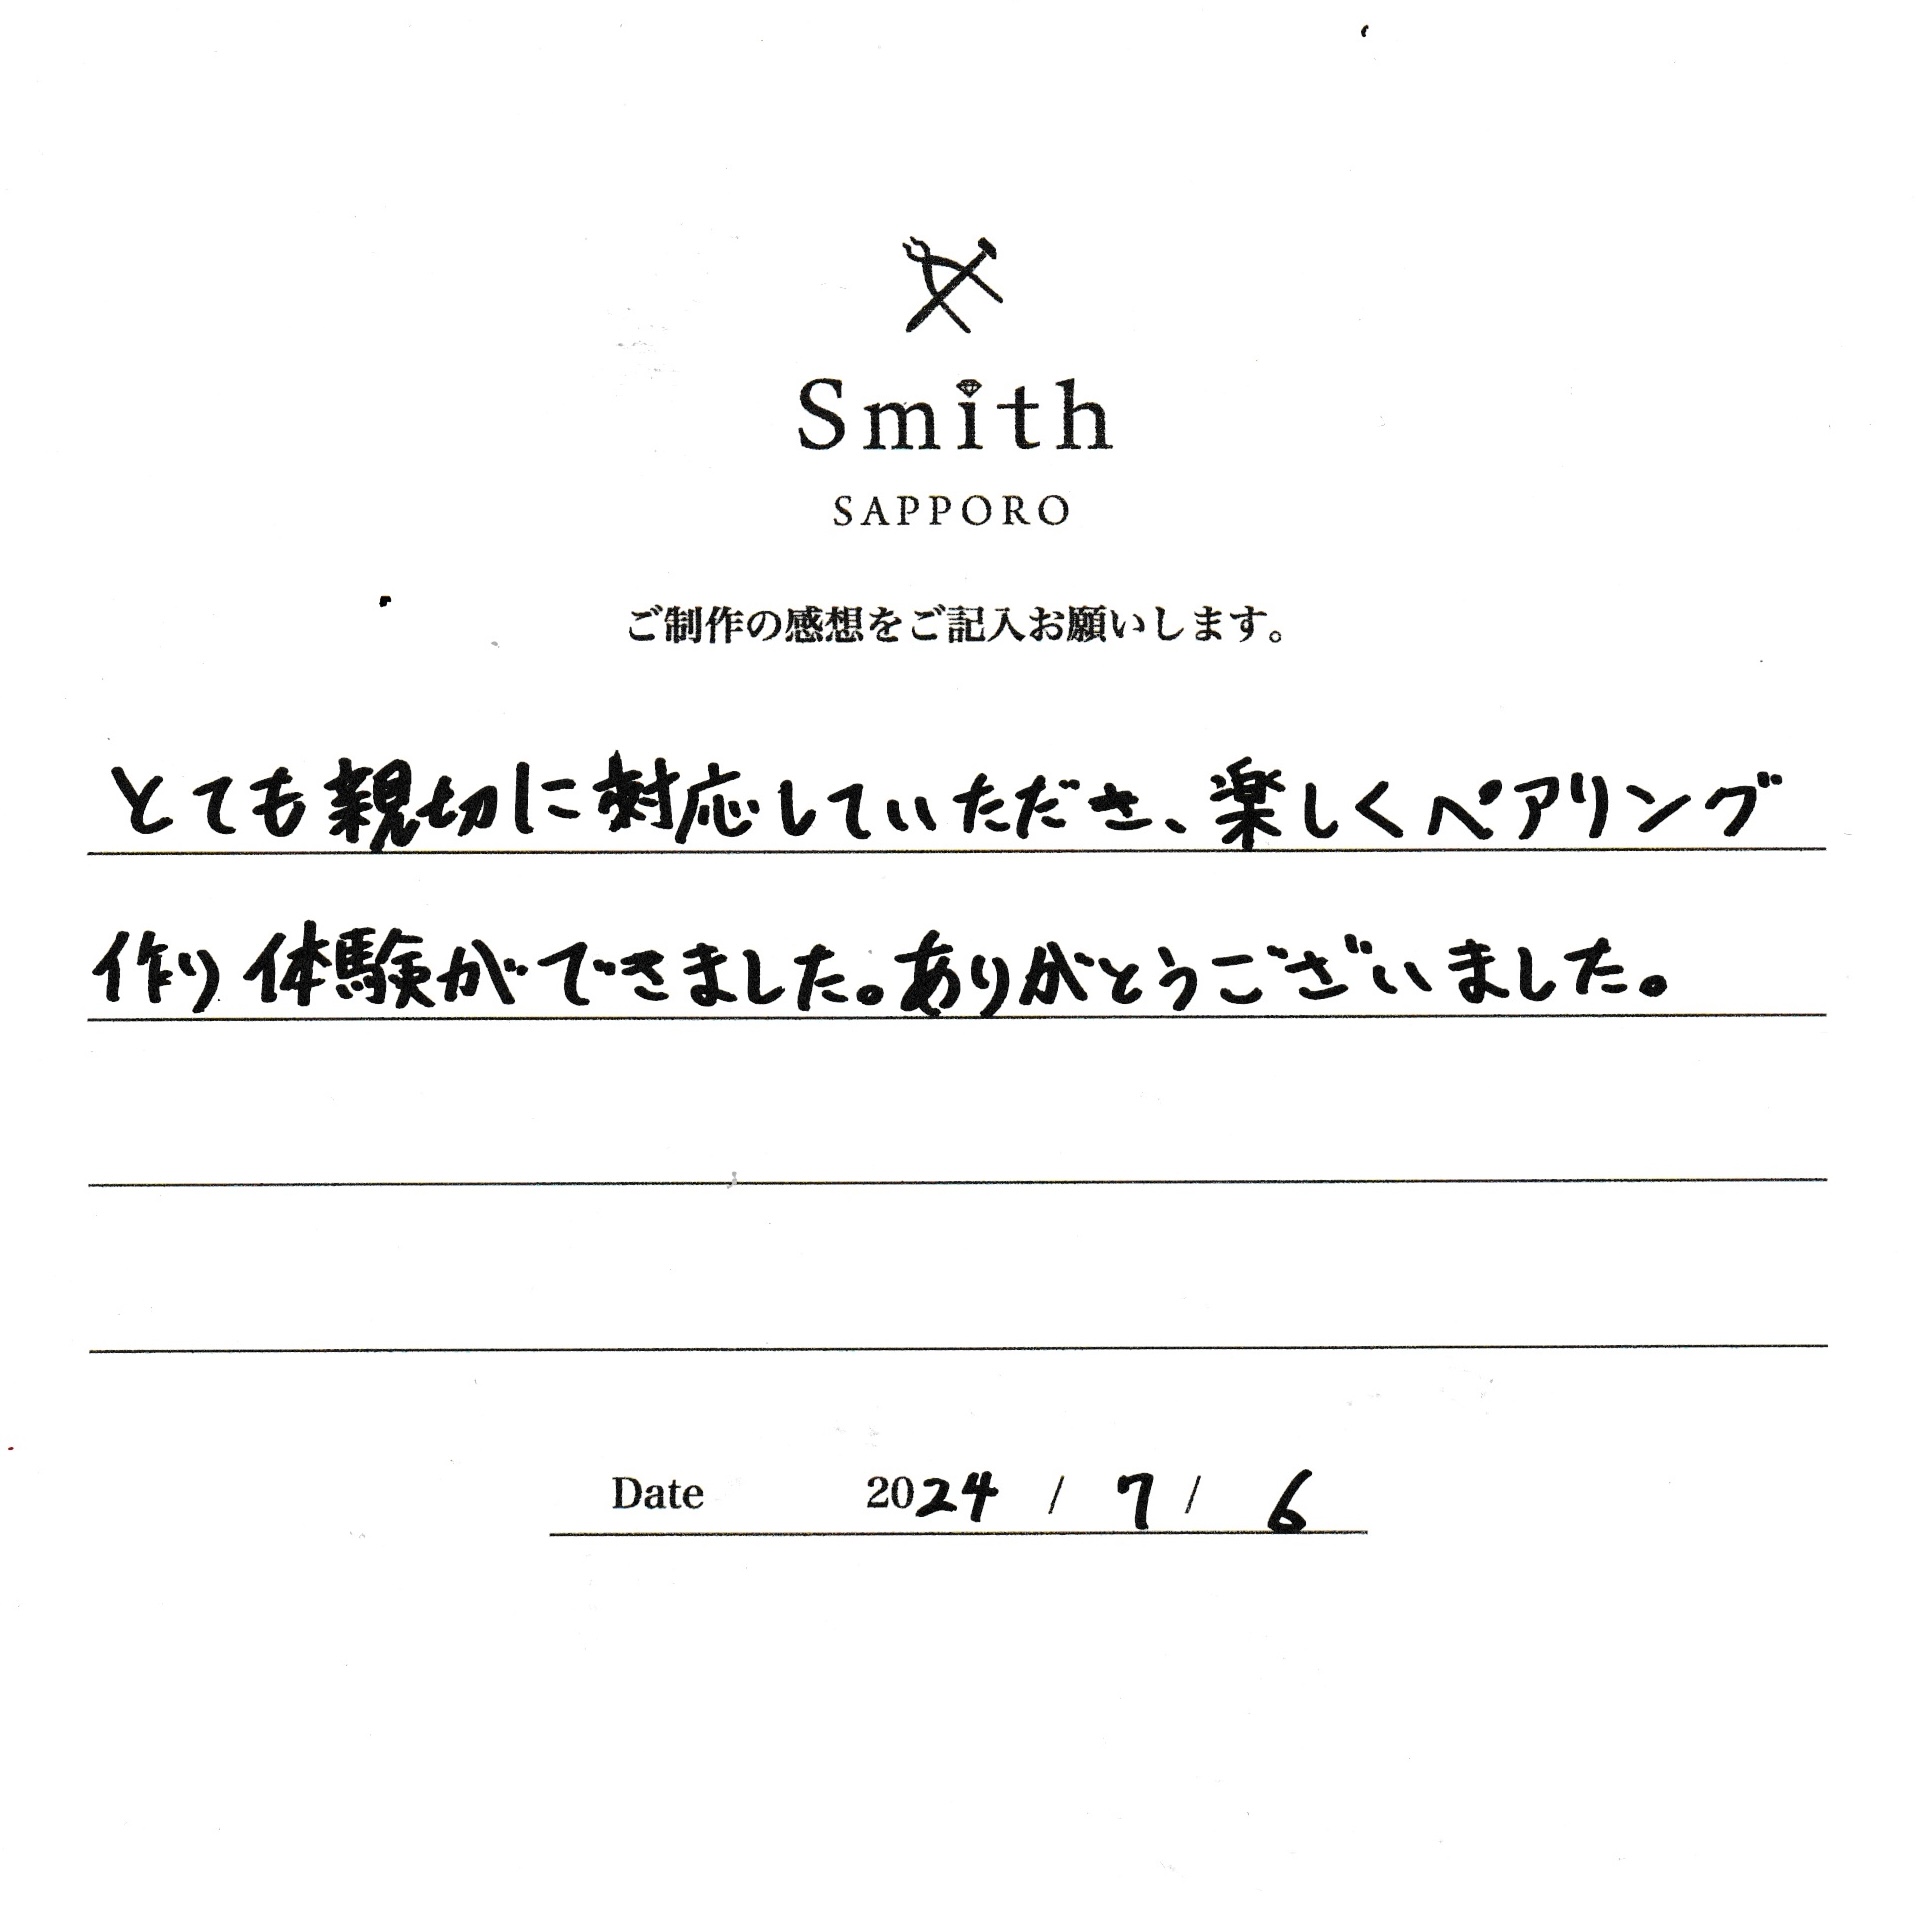 Smith
SAPPORO
ご制作の感想をご記入お願いします。
とても親切に対応していただき、楽しくペアリング
作り体験ができました。ありがとうございました。
Date 2024 / 7 / 6